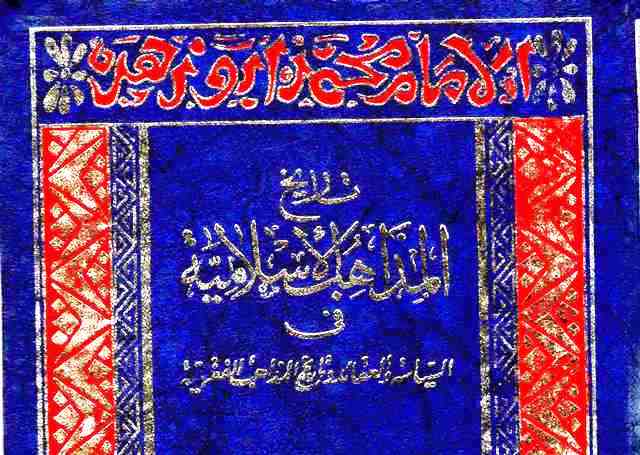 الإمام محمد أبو زهرة
تاريخ
المذاهب الإسلامية
في
السياسة والعقائد وتاريخ المذاهب الفقهية